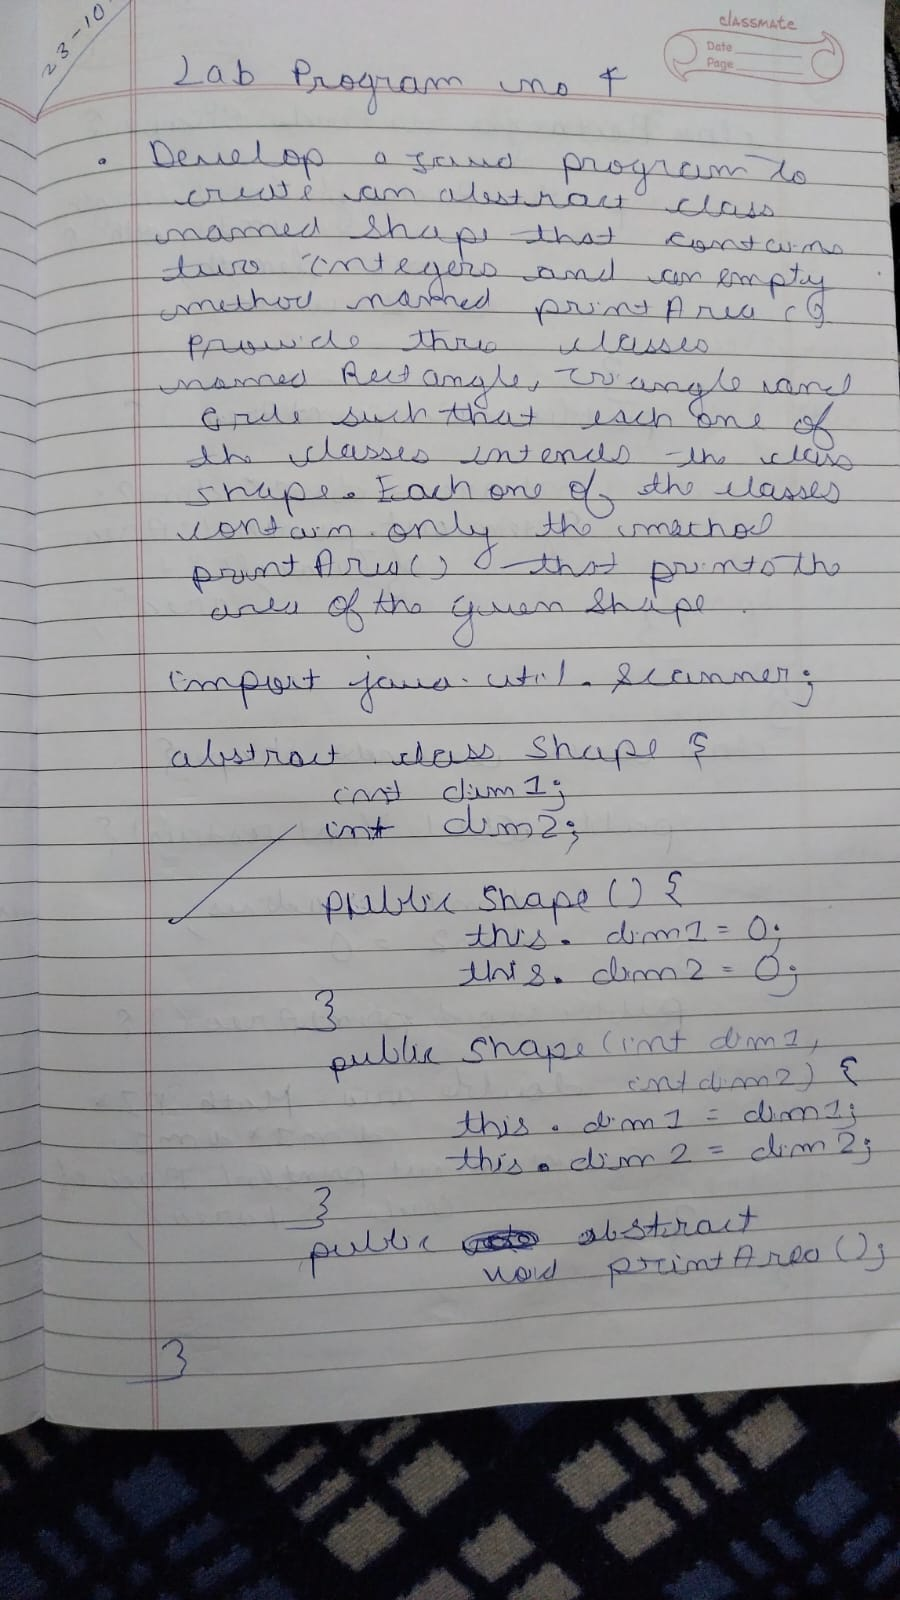 23-10
classmate
Date
Page
Lab Program no 4
• Develop a java program to
create an abstract class
named Shape that contains
two integers and an empty
method named printArea()
Provide three classes
named Rectangle, Triangle and
Circle such that each one of
the classes extends the class
shape. Each one of the classes
contain only the method
printArea() that prints the
area of the given Shape.
import java.util.Scanner;
abstract class Shape {
int dim1;
int dim2;
public Shape () {
this. dim1 = 0;
this. dim2 = 0;
}
public Shape (int dim1,
int dim2) {
this. dim1 = dim1;
this. dim2 = dim2;
}
public abstract
void printArea();
}